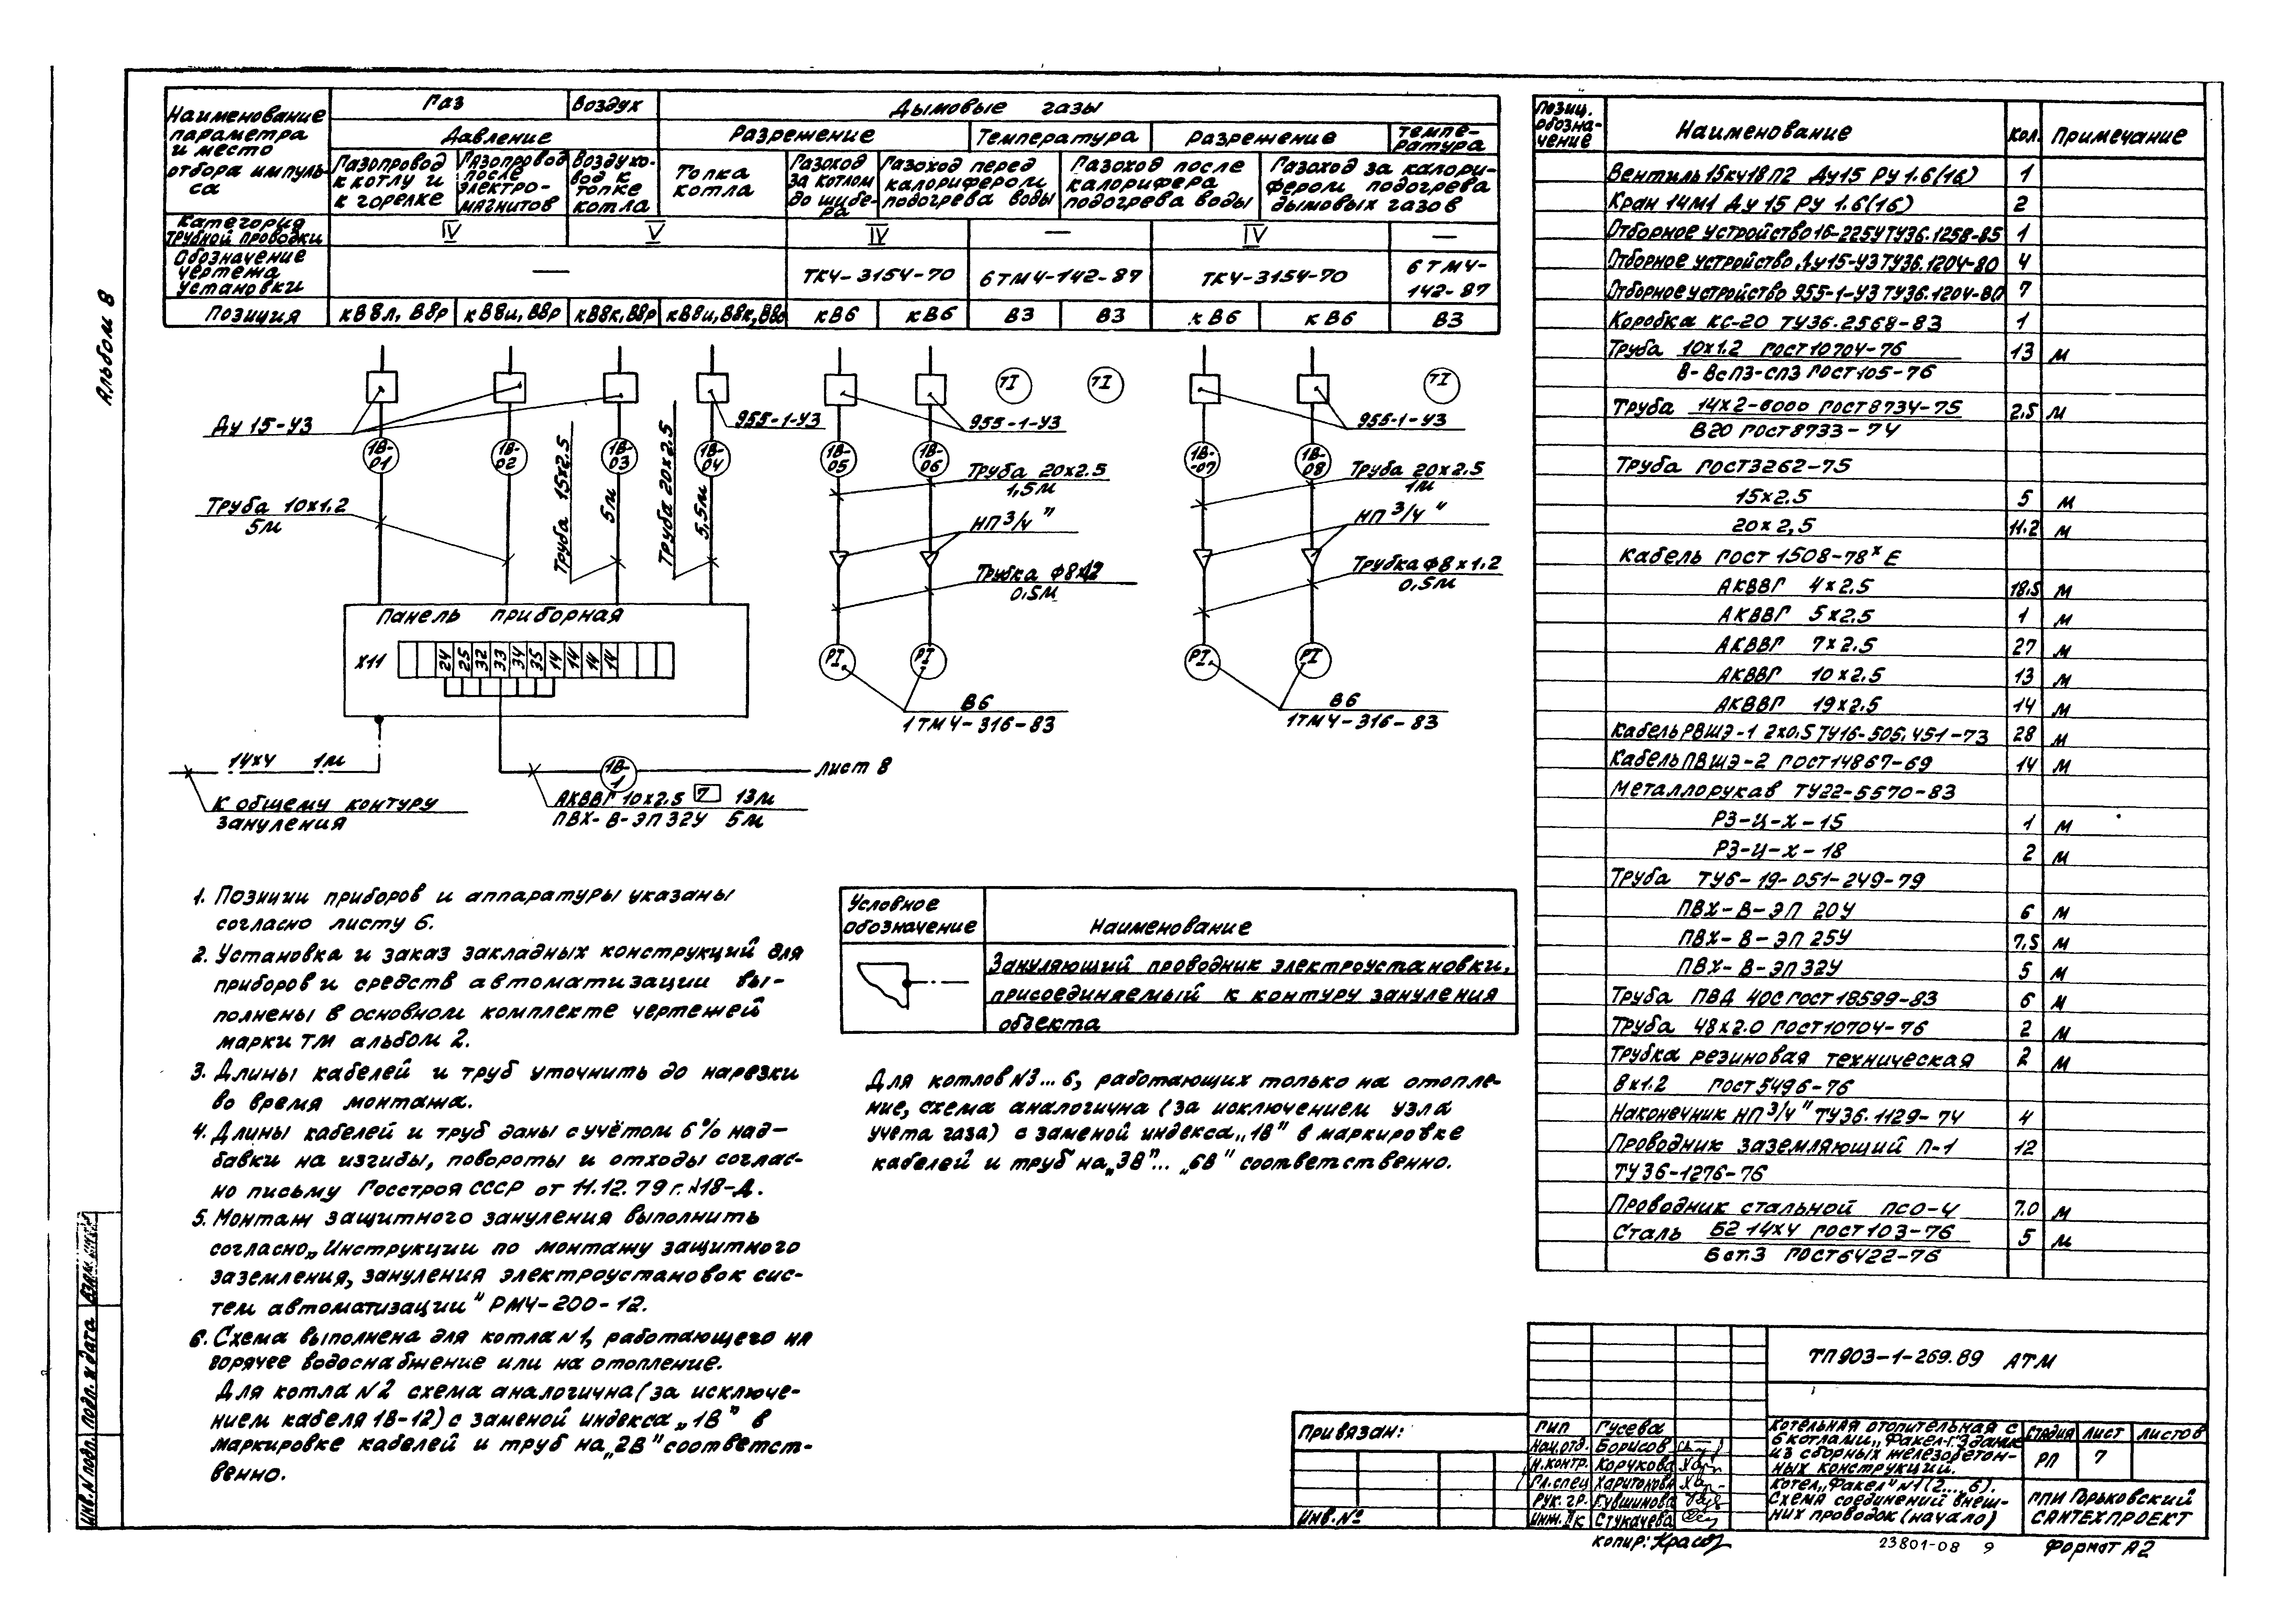 Альбом 8
Наименование параметра и место отбора импульса
Газ
Воздух
Дымовые газы
Давление
Разрежение
Температура
Разрежение
Температура
Газопровод к котлу и к горелке
Газопровод после электромагнитов
Воздуховод к топке котла
Топка котла
Газоход за котлом до шибера
Газоход перед калорифером подогрева воды
Газоход после калорифера подогрева воды
Газоход за калорифером подогрева дымовых газов
Категория трубной проводки
IV
V
IV
—
IV
—
Обозначение чертежа установки
—
ТК4-3154-70
6ТМ4-142-87
ТК4-3154-70
6ТМ4-142-87
Позиция
кВ8л, В8р
кВ8и, В8р
кВ8к, В8р
кВ8и, В8к, В8о
кВ6
кВ6
В3
В3
кВ6
кВ6
В3
TI
TI
TI
Ду 15-У3
955-1-У3
955-1-У3
955-1-У3
1В-01
1В-02
1В-03
1В-04
1В-05
1В-06
1В-07
1В-08
Труба 10х1.2
5м
Труба 15х2.5
5м
Труба 20х2.5
5,5м
Труба 20х2.5
1,5м
Труба 20х2.5
1м
НП 3/4"
НП 3/4"
Трубка ф8х1.2
0,5м
Трубка ф8х1.2
0,5м
Панель приборная
Х11
24 25 32 33 34 35 14 14 14 14
PI
PI
PI
PI
В6
1ТМ4-316-83
В6
1ТМ4-316-83
14х4 1м
К общему контуру
зануления
1В-1
Лист 8
АКВВГ 10х2.5 7 13м
ПВХ-В-ЭП 32У 5м
1. Позиции приборов и аппаратуры указаны
согласно листу 6.
2. Установка и заказ закладных конструкций для
приборов и средств автоматизации вы-
полнены в основном комплекте чертежей
марки ТМ альбом 2.
3. Длины кабелей и труб уточнить до нарезки
во время монтажа.
4. Длины кабелей и труб даны с учётом 6% над-
бавки на изгибы, повороты и отходы соглас-
но письму Госстроя СССР от 11.12.79 г. №18-Д.
5. Монтаж защитного зануления выполнить
согласно „Инструкции по монтажу защитного
заземления, зануления электроустановок сис-
тем автоматизации" РМ4-200-12.
6. Схема выполнена для котла №1, работающего на
горячее водоснабжение или на отопление.
Для котла №2 схема аналогична (за исключе-
нием кабеля 1В-12) с заменой индекса „1В" в
маркировке кабелей и труб на „2В" соответст-
венно.
Условное обозначение
Наименование
Зануляющий проводник электроустановки,
присоединяемый к контуру зануления
объекта
Для котлов №3...6, работающих только на отопле-
ние, схема аналогична (за исключением узла
учета газа) с заменой индекса „1В" в маркировке
кабелей и труб на „3В"... „6В" соответственно.
Позиц. обозначение
Наименование
Кол.
Примечание
Вентиль 15кч18П2 Ду15 Ру 1.6(16) 1
Кран 14М1 Ду 15 Ру 1.6(16) 2
Отборное устройство 16-225У ТУ36.1258-85 1
Отборное устройство Ду15-У3 ТУ36.1204-80 4
Отборное устройство 955-1-У3 ТУ36.1204-80 7
Коробка КС-20 ТУ36.2568-83 1
Труба 10х1.2 ГОСТ10704-76 13 м
В-ВсП3-СП3 ГОСТ105-76
Труба 14х2-6000 ГОСТ8734-75 2.5 м
В20 ГОСТ8733-74
Труба ГОСТ3262-75
15х2.5 5 м
20х2,5 11.2 м
Кабель ГОСТ 1508-78х Е
АКВВГ 4х2.5 18.5 м
АКВВГ 5х2.5 1 м
АКВВГ 7х2.5 27 м
АКВВГ 10х2.5 13 м
АКВВГ 19х2.5 14 м
Кабель РВШЭ-1 2х0.5 ТУ16-505.451-73 28 м
Кабель ПВШЭ-2 ГОСТ14867-69 14 м
Металлорукав ТУ22-5570-83
РЗ-Ц-Х-15 1 м
РЗ-Ц-Х-18 2 м
Труба ТУ6-19-051-249-79
ПВХ-В-ЭП 20У 6 м
ПВХ-В-ЭП 25У 7.5 м
ПВХ-В-ЭП32У 5 м
Труба ПВД 40С ГОСТ18599-83 6 м
Труба 48х2.0 ГОСТ10704-76 2 м
Трубка резиновая техническая 2 м
8х1.2 ГОСТ5496-76
Наконечник НП 3/4" ТУ36.1129-74 4
Проводник заземляющий П-1 12
ТУ36-1276-76
Проводник стальной ПСО-4 7.0 м
Сталь Б2 14х4 ГОСТ103-76 5 м
Вст.3 ГОСТ6422-76
ТП903-1-269.89 АТМ
Привязан:
Инв.№
ГИП Гусева
Нач.отд. Борисов
Н.контр. Корчкова
Гл.спец Харитонова
Рук.гр. Кувшинова
Инж.IIк Стукачева
Котельная отопительная с
6 котлами „Факел-Г". Здание
из сборных железобетон-
ных конструкций.
Котел „Факел" №1 (2...6).
Схема соединений внеш-
них проводок (начало)
Стадия Лист Листов
РП 7
ГПИ Горьковский
САНТЕХПРОЕКТ
Копир:
23801-08 9
Формат А2
Инв.№ подл. Подп. и дата Взам. инв.№